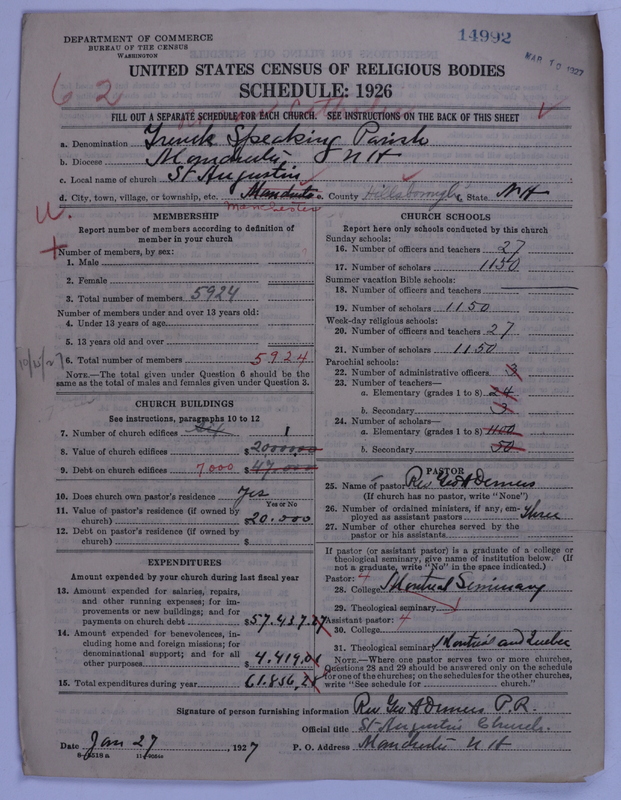 DEPARTMENT OF COMMERCE
BUREAU OF THE CENSUS
WASHINGTON
14992
MAR 10 1927
UNITED STATES CENSUS OF RELIGIOUS BODIES
SCHEDULE: 1926
62
FILL OUT A SEPARATE SCHEDULE FOR EACH CHURCH. SEE INSTRUCTIONS ON THE BACK OF THIS SHEET
a. Denomination French Speaking Parish
b. Diocese Manchester N H
c. Local name of church St Augustin
d. City, town, village, or township, etc. Manchester e. County Hillsborough f. State N H
Manchester
MEMBERSHIP
Report number of members according to definition of
member in your church
Number of members, by sex:
1. Male
2. Female
3. Total number of members 5924
Number of members under and over 13 years old:
4. Under 13 years of age
5. 13 years old and over
10/25/27
6. Total number of members 5924
NOTE.—The total given under Question 6 should be the
same as the total of males and females given under Question 3.
CHURCH BUILDINGS
See instructions, paragraphs 10 to 12
7. Number of church edifices Six 1
8. Value of church edifices $
9. Debt on church edifices 7000 $ 47,000
10. Does church own pastor's residence Yes
Yes or No
11. Value of pastor's residence (if owned by
church) $ 20.000
12. Debt on pastor's residence (if owned by
church) $
EXPENDITURES
Amount expended by your church during last fiscal year
13. Amount expended for salaries, repairs,
and other running expenses; for im-
provements or new buildings; and for
payments on church debt $ 57.437.27
14. Amount expended for benevolences, in-
cluding home and foreign missions; for
denominational support; and for all
other purposes $ 4.419.01
15. Total expenditures during year 61.856.28
CHURCH SCHOOLS
Report here only schools conducted by this church
Sunday schools:
16. Number of officers and teachers 27
17. Number of scholars 1150
Summer vacation Bible schools:
18. Number of officers and teachers
19. Number of scholars 1150
Week-day religious schools:
20. Number of officers and teachers 27
21. Number of scholars 1150
Parochial schools:
22. Number of administrative officers 3
23. Number of teachers—
a. Elementary (grades 1 to 8) 24
b. Secondary 3
24. Number of scholars—
a. Elementary (grades 1 to 8) 1100
b. Secondary 50
PASTOR
25. Name of pastor Rev Geo A Demers
(If church has no pastor, write "None")
26. Number of ordained ministers, if any, em-
ployed as assistant pastors Three
27. Number of other churches served by the
pastor or his assistants
If pastor (or assistant pastor) is a graduate of a college or
theological seminary, give name of institution below. (If
not a graduate, write "No" in the space indicated.)
Pastor: 4
28. College Montreal Seminary
29. Theological seminary
Assistant pastor: 4
30. College
31. Theological seminary Montreal and Quebec
NOTE.—Where one pastor serves two or more churches,
Questions 28 and 29 should be answered only on the schedule
for one of the churches; on the schedules for the other churches,
write "See schedule for church."
Signature of person furnishing information Rev Geo A Demers P.R.
Official title St Augustin Church.
Date Jan 27, 1927 P. O. Address Manchester N H